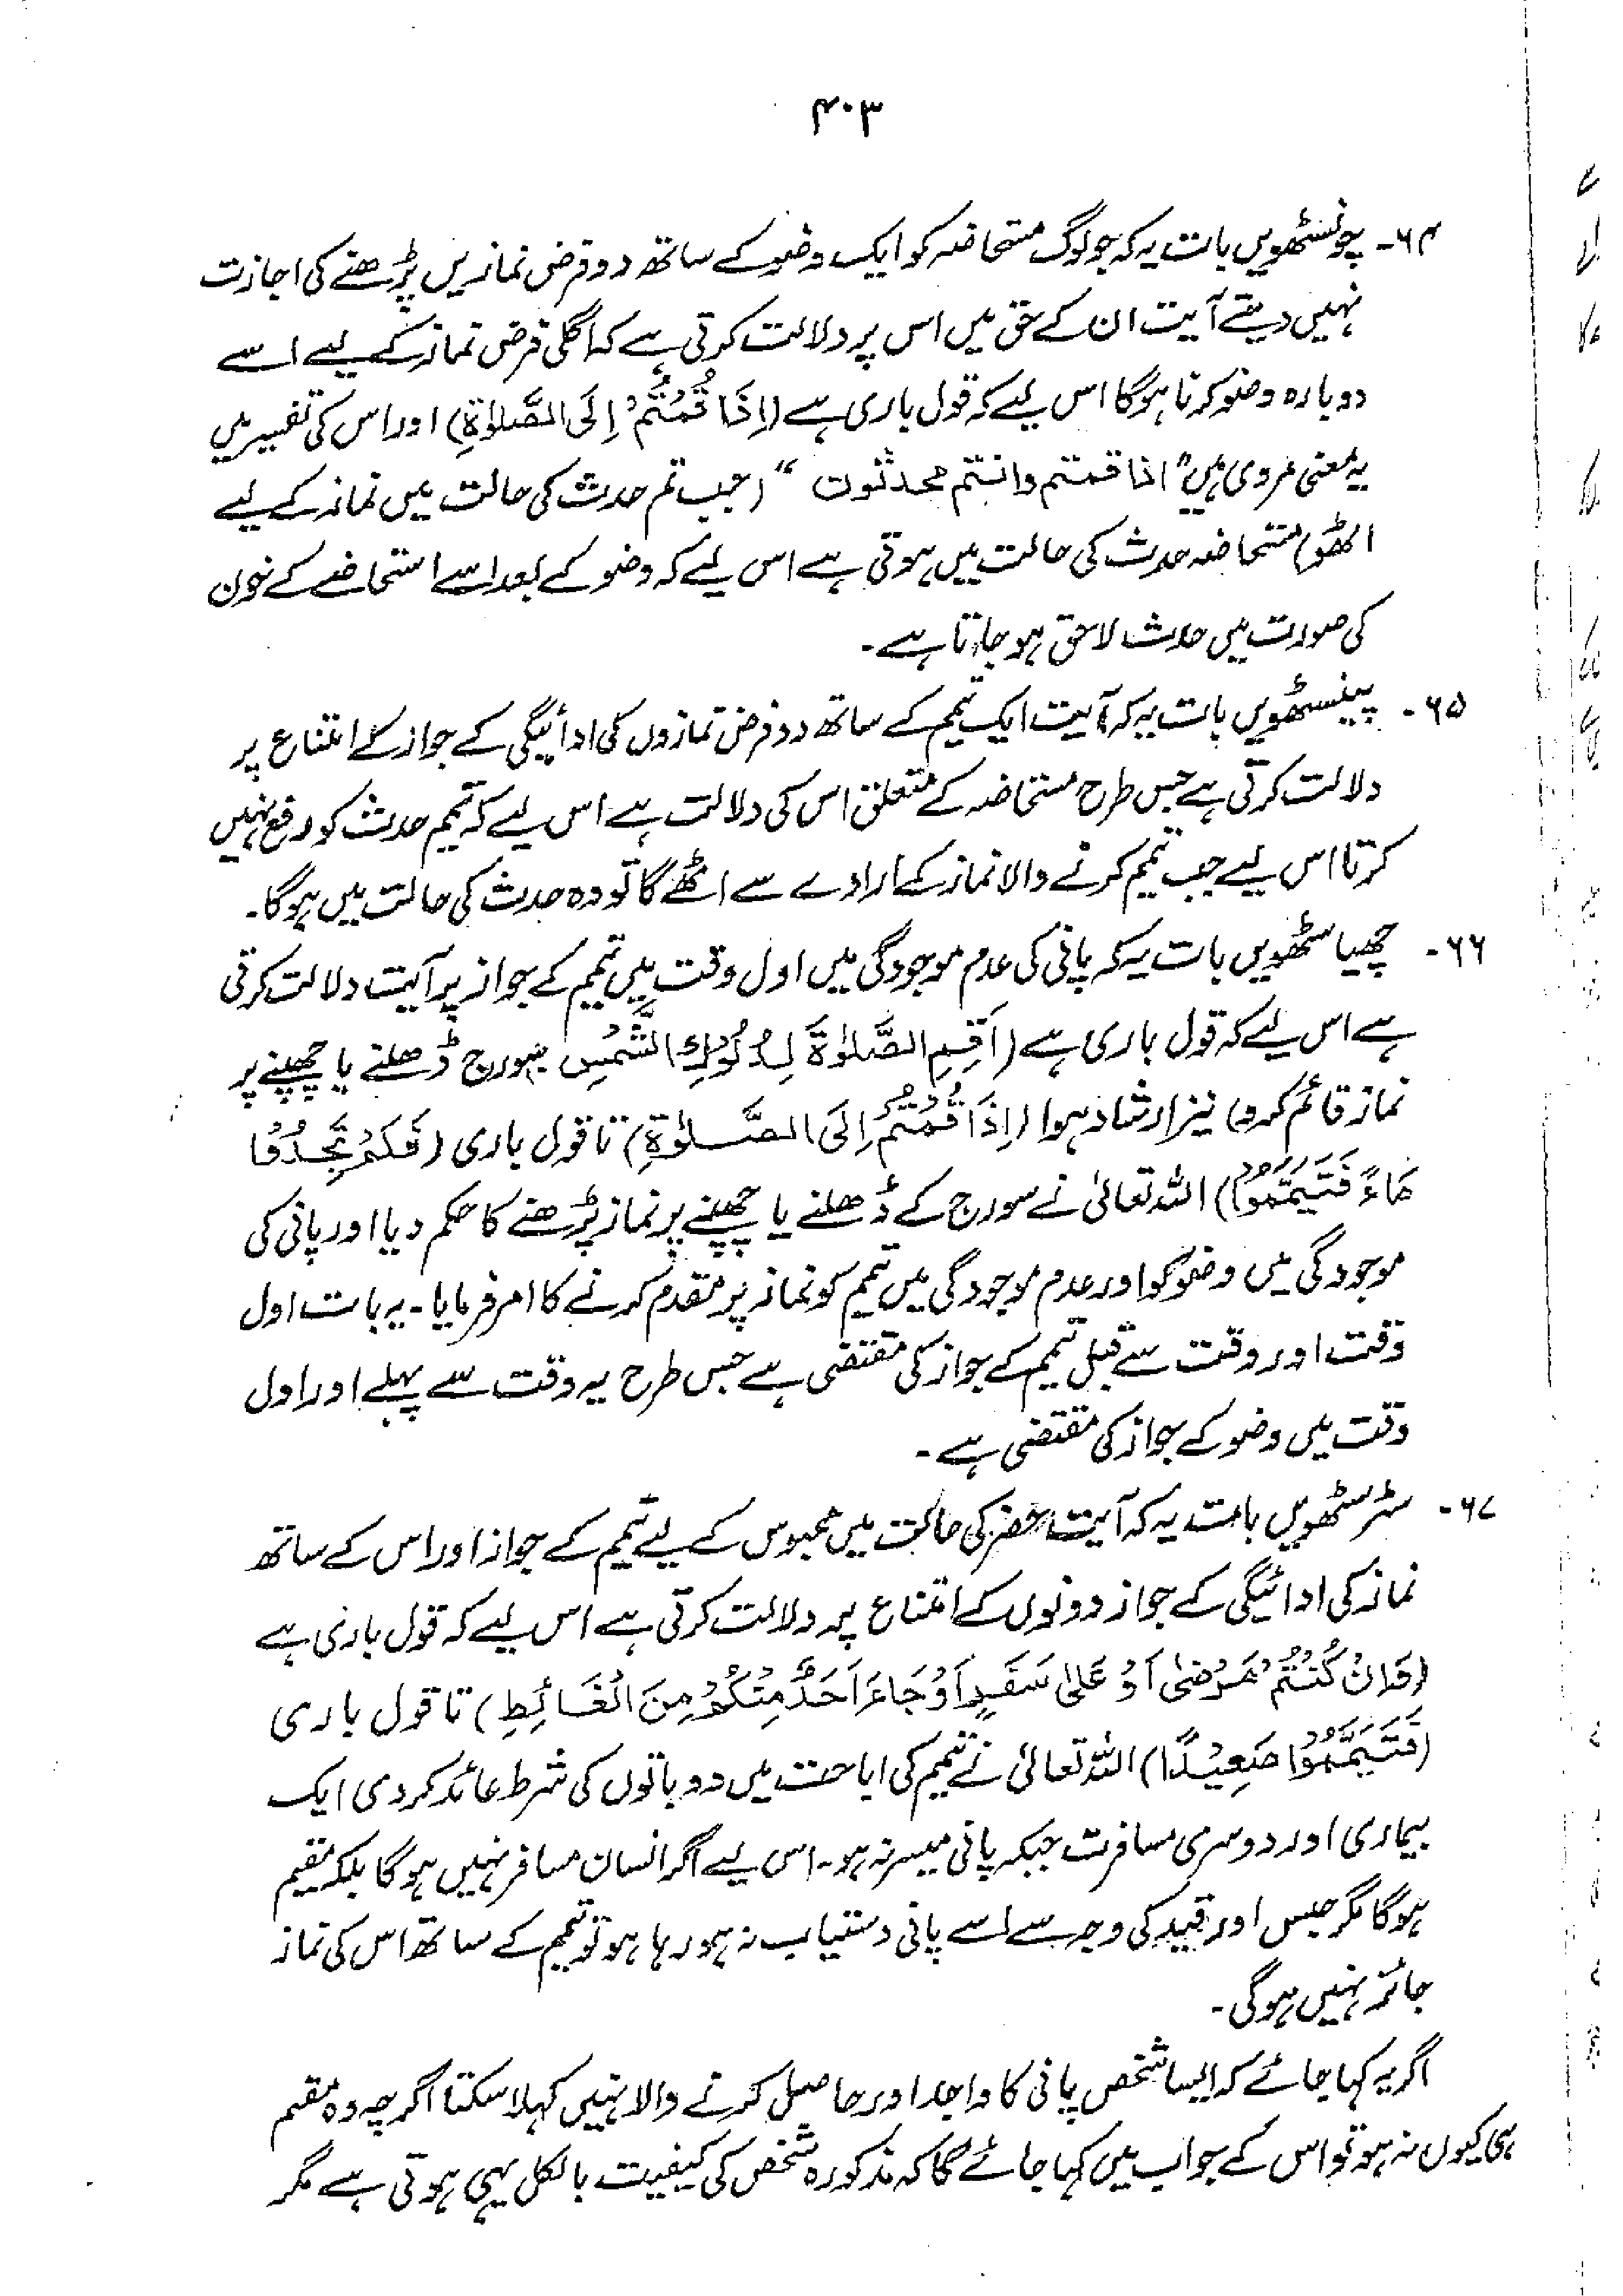 ۴۰۳
۶۴- چونسٹھویں بات یہ کہ جو لوگ مستحاضہ کو ایک وضو کے ساتھ دو فرض نمازیں پڑھنے کی اجازت
نہیں دیتے آیت ان کے حق میں اس پر دلالت کرتی ہے کہ اگلی فرض نماز کے لیے اسے
دوبارہ وضو کرنا ہوگا اس لیے کہ قول باری ہے (اِذَا قُمْتُمْ اِلَی الصَّلٰوۃِ) اور اس کی تفسیر میں
یہ معنی مروی ہیں "اذا قمتم وانتم محدثون" (جب تم حدث کی حالت میں نماز کے لیے
اٹھو) مستحاضہ حدث کی حالت میں ہوتی ہے اس لیے کہ وضو کے بعد اسے استحاضے کے خون
کی صورت میں حدث لاحق ہو جاتا ہے۔
۶۵- پینسٹھویں بات یہ کہ آیت ایک تیمم کے ساتھ دو فرض نمازوں کی ادائیگی کے جواز کے امتناع پر
دلالت کرتی ہے جس طرح مستحاضہ کے متعلق اس کی دلالت ہے اس لیے کہ تیمم حدث کو رفع نہیں
کرتا اس لیے جب تیمم کرنے والا نماز کے ارادے سے اٹھے گا تو وہ حدث کی حالت میں ہوگا۔
۶۶- چھیاسٹھویں بات یہ کہ پانی کی عدم موجودگی میں اول وقت میں تیمم کے جواز پر آیت دلالت کرتی
ہے اس لیے کہ قول باری ہے (اَقِمِ الصَّلٰوۃَ لِدُلُوْکِ الشَّمْسِ سورج ڈھلنے یا چھپنے پر
نماز قائم کرو) نیز ارشاد ہوا (اِذَا قُمْتُمْ اِلَی الصَّلٰوۃِ) تا قول باری (فَلَمْ تَجِدُوْا
مَاءً فَتَیَمَّمُوْا) اللہ تعالیٰ نے سورج کے ڈھلنے یا چھپنے پر نماز پڑھنے کا حکم دیا اور پانی کی
موجودگی میں وضو کو اور عدم موجودگی میں تیمم کو نماز پر مقدم کرنے کا امر فرمایا۔ یہ بات اول
وقت اور وقت سے قبل تیمم کے جواز کی مقتضی ہے جس طرح یہ وقت سے پہلے اور اول
وقت میں وضو کے جواز کی مقتضی ہے۔
۶۷- سٹرسٹھویں بات یہ کہ آیت حضر کی حالت میں محبوس کے لیے تیمم کے جواز اور اس کے ساتھ
نماز کی ادائیگی کے جواز دونوں کے امتناع پر دلالت کرتی ہے اس لیے کہ قول باری ہے
(وَاِنْ کُنْتُمْ مَرْضٰی اَوْ عَلٰی سَفَرٍ اَوْ جَاءَ اَحَدٌ مِنْکُمْ مِنَ الْغَائِطِ) تا قول باری
(فَتَیَمَّمُوْا صَعِیْدًا) اللہ تعالیٰ نے تیمم کی اباحت میں دو باتوں کی شرط عائد کر دی ایک
بیماری اور دوسری مسافرت جبکہ پانی میسر نہ ہو۔ اس لیے اگر انسان مسافر نہیں ہوگا بلکہ مقیم
ہوگا مگر حبس اور قید کی وجہ سے اسے پانی دستیاب نہ ہو رہا ہو تو تیمم کے ساتھ اس کی نماز
جائز نہیں ہوگی۔
اگر یہ کہا جائے کہ ایسا شخص پانی کا واجد اور حاصل کرنے والا نہیں کہلا سکتا اگرچہ وہ مقیم
ہی کیوں نہ ہو تو اس کے جواب میں کہا جائے گا کہ مذکورہ شخص کی کیفیت بالکل یہی ہوتی ہے مگر